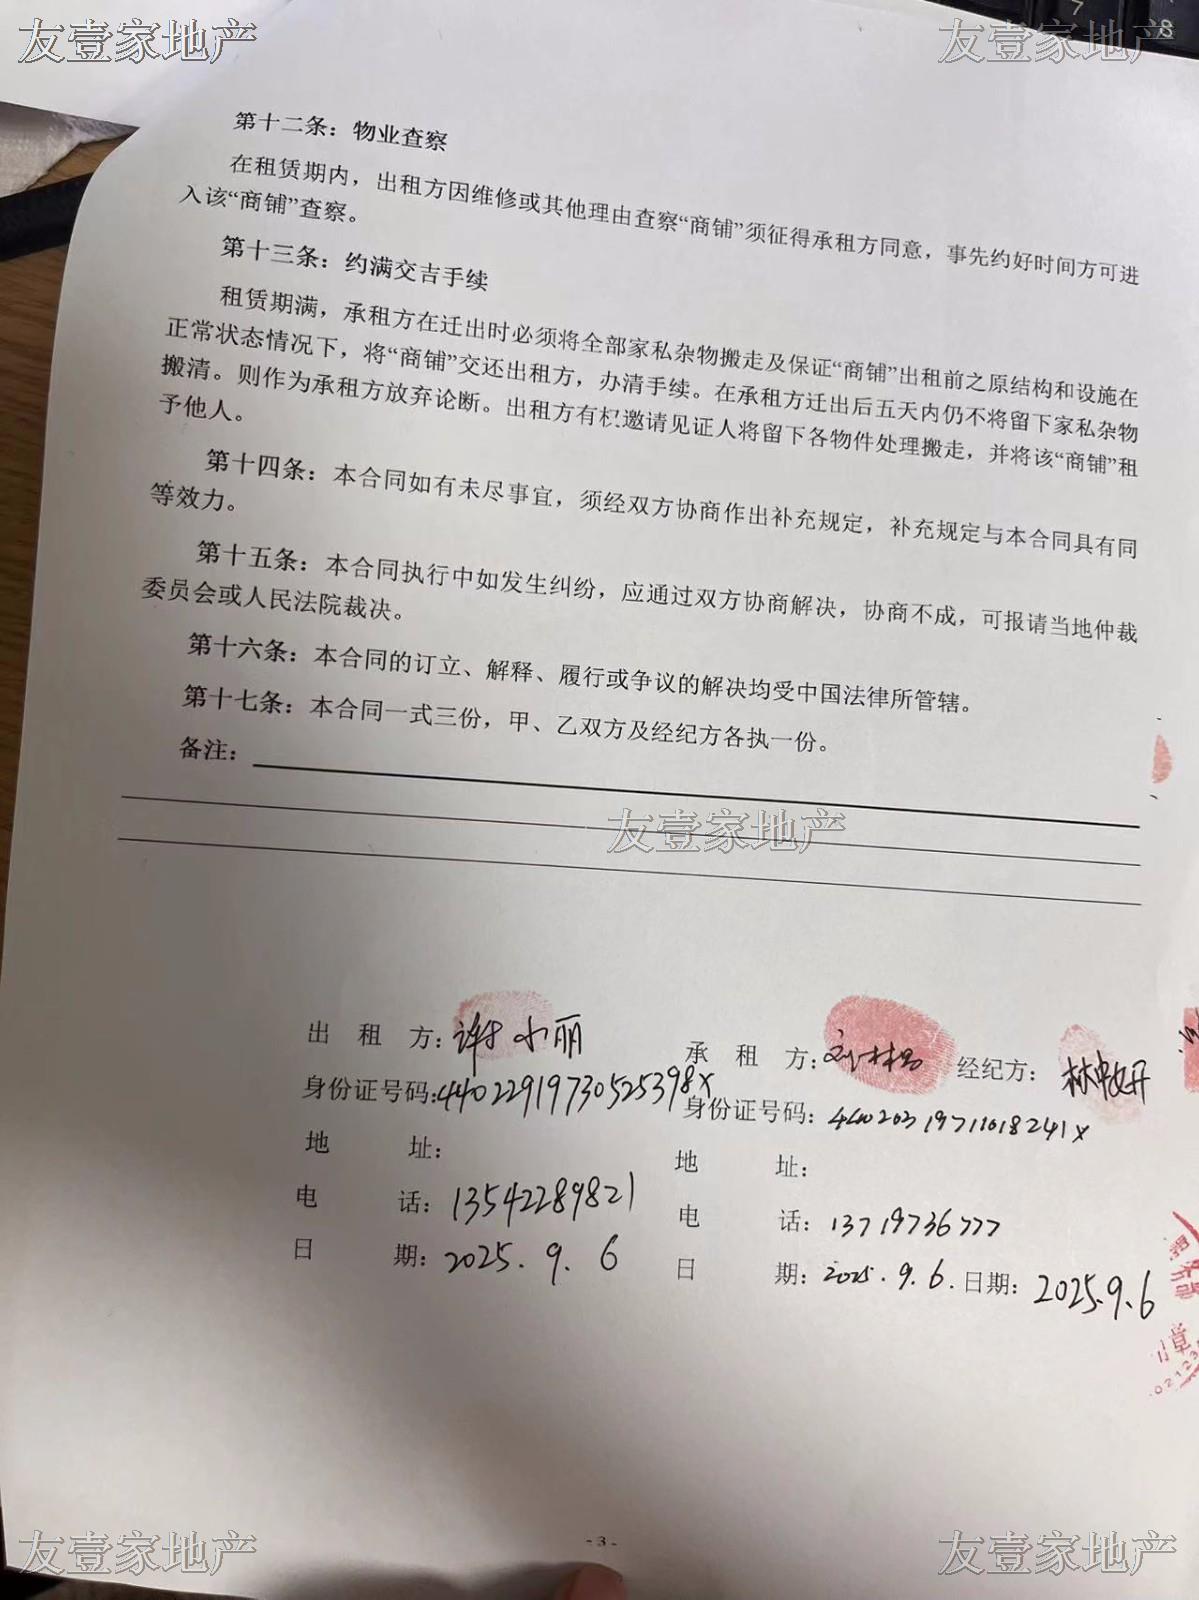 友壹家地产 友壹家地产
7
8
第十二条：物业查察
在租赁期内，出租方因维修或其他理由查察“商铺”须征得承租方同意，事先约好时间方可进
入该“商铺”查察。
第十三条：约满交吉手续
租赁期满，承租方在迁出时必须将全部家私杂物搬走及保证“商铺”出租前之原结构和设施在
正常状态情况下，将“商铺”交还出租方，办清手续。在承租方迁出后五天内仍不将留下家私杂物
搬清。则作为承租方放弃论断。出租方有权邀请见证人将留下各物件处理搬走，并将该“商铺”租
予他人。
第十四条：本合同如有未尽事宜，须经双方协商作出补充规定，补充规定与本合同具有同
等效力。
第十五条：本合同执行中如发生纠纷，应通过双方协商解决，协商不成，可报请当地仲裁
委员会或人民法院裁决。
第十六条：本合同的订立、解释、履行或争议的解决均受中国法律所管辖。
第十七条：本合同一式三份，甲、乙双方及经纪方各执一份。
备注：
友壹家地产
出 租 方：谢小丽 承 租 方： 经纪方：
身份证号码：44022919730525398X 身份证号码：
地 址： 地 址：
电 话：13542289821 电 话：13719736777
日 期：2025.9.6 日 期：2025.9.6. 日期：2025.9.6
章
- 3 -
友壹家地产 友壹家地产